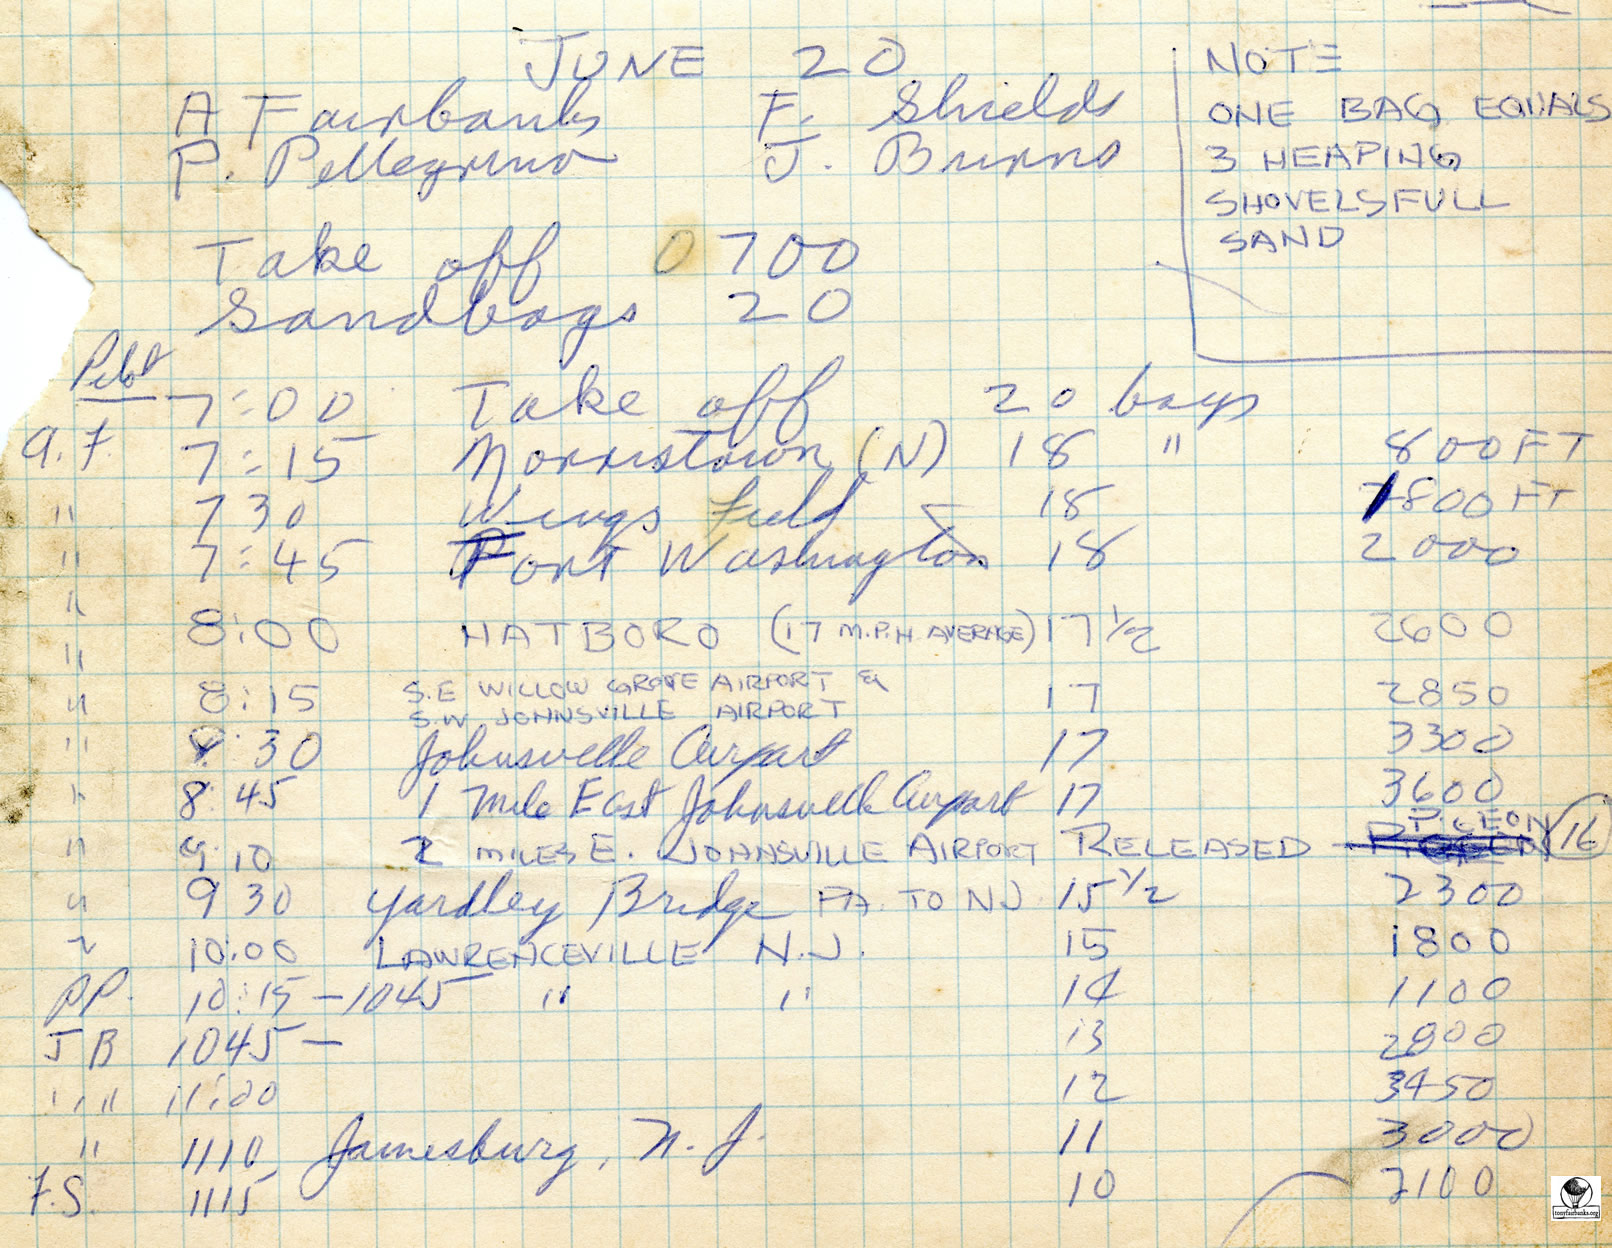 JUNE 20
A Fairbanks F. Shields
P. Pellegrino J. Burns
NOTE
ONE BAG EQUALS
3 HEAPING
SHOVELSFULL
SAND
Take off 0700
Sandbags 20
Pilot
7:00 Take off 20 bags
A.F. 7:15 Norristown (N) 18 " 800 FT
" 7 30 Wings Field 18 1800 FT
" 7:45 Fort Washington 18 2000
" 8:00 HATBORO (17 M.P.H. AVERAGE) 17 1/2 2600
"
" 8:15 S.E WILLOW GROVE AIRPORT & 17 2850
S.W. JOHNSVILLE AIRPORT
" 8:30 Johnsville Airport 17 3300
" 8:45 1 Mile East Johnsville Airport 17 3600
" 9:10 2 MILES E. JOHNSVILLE AIRPORT RELEASED PIGEON 16
" 9 30 Yardley Bridge PA. TO NJ 15 1/2 2300
" 10:00 LAWRENCEVILLE N.J. 15 1800
P.P. 10:15 - 1045 " " 14 1100
JB 1045 - 13 2800
" " 11:00 12 3450
" 1110 Jamesburg, N.J. 11 3000
F.S. 1115 10 2100
tonyfairbanks.org